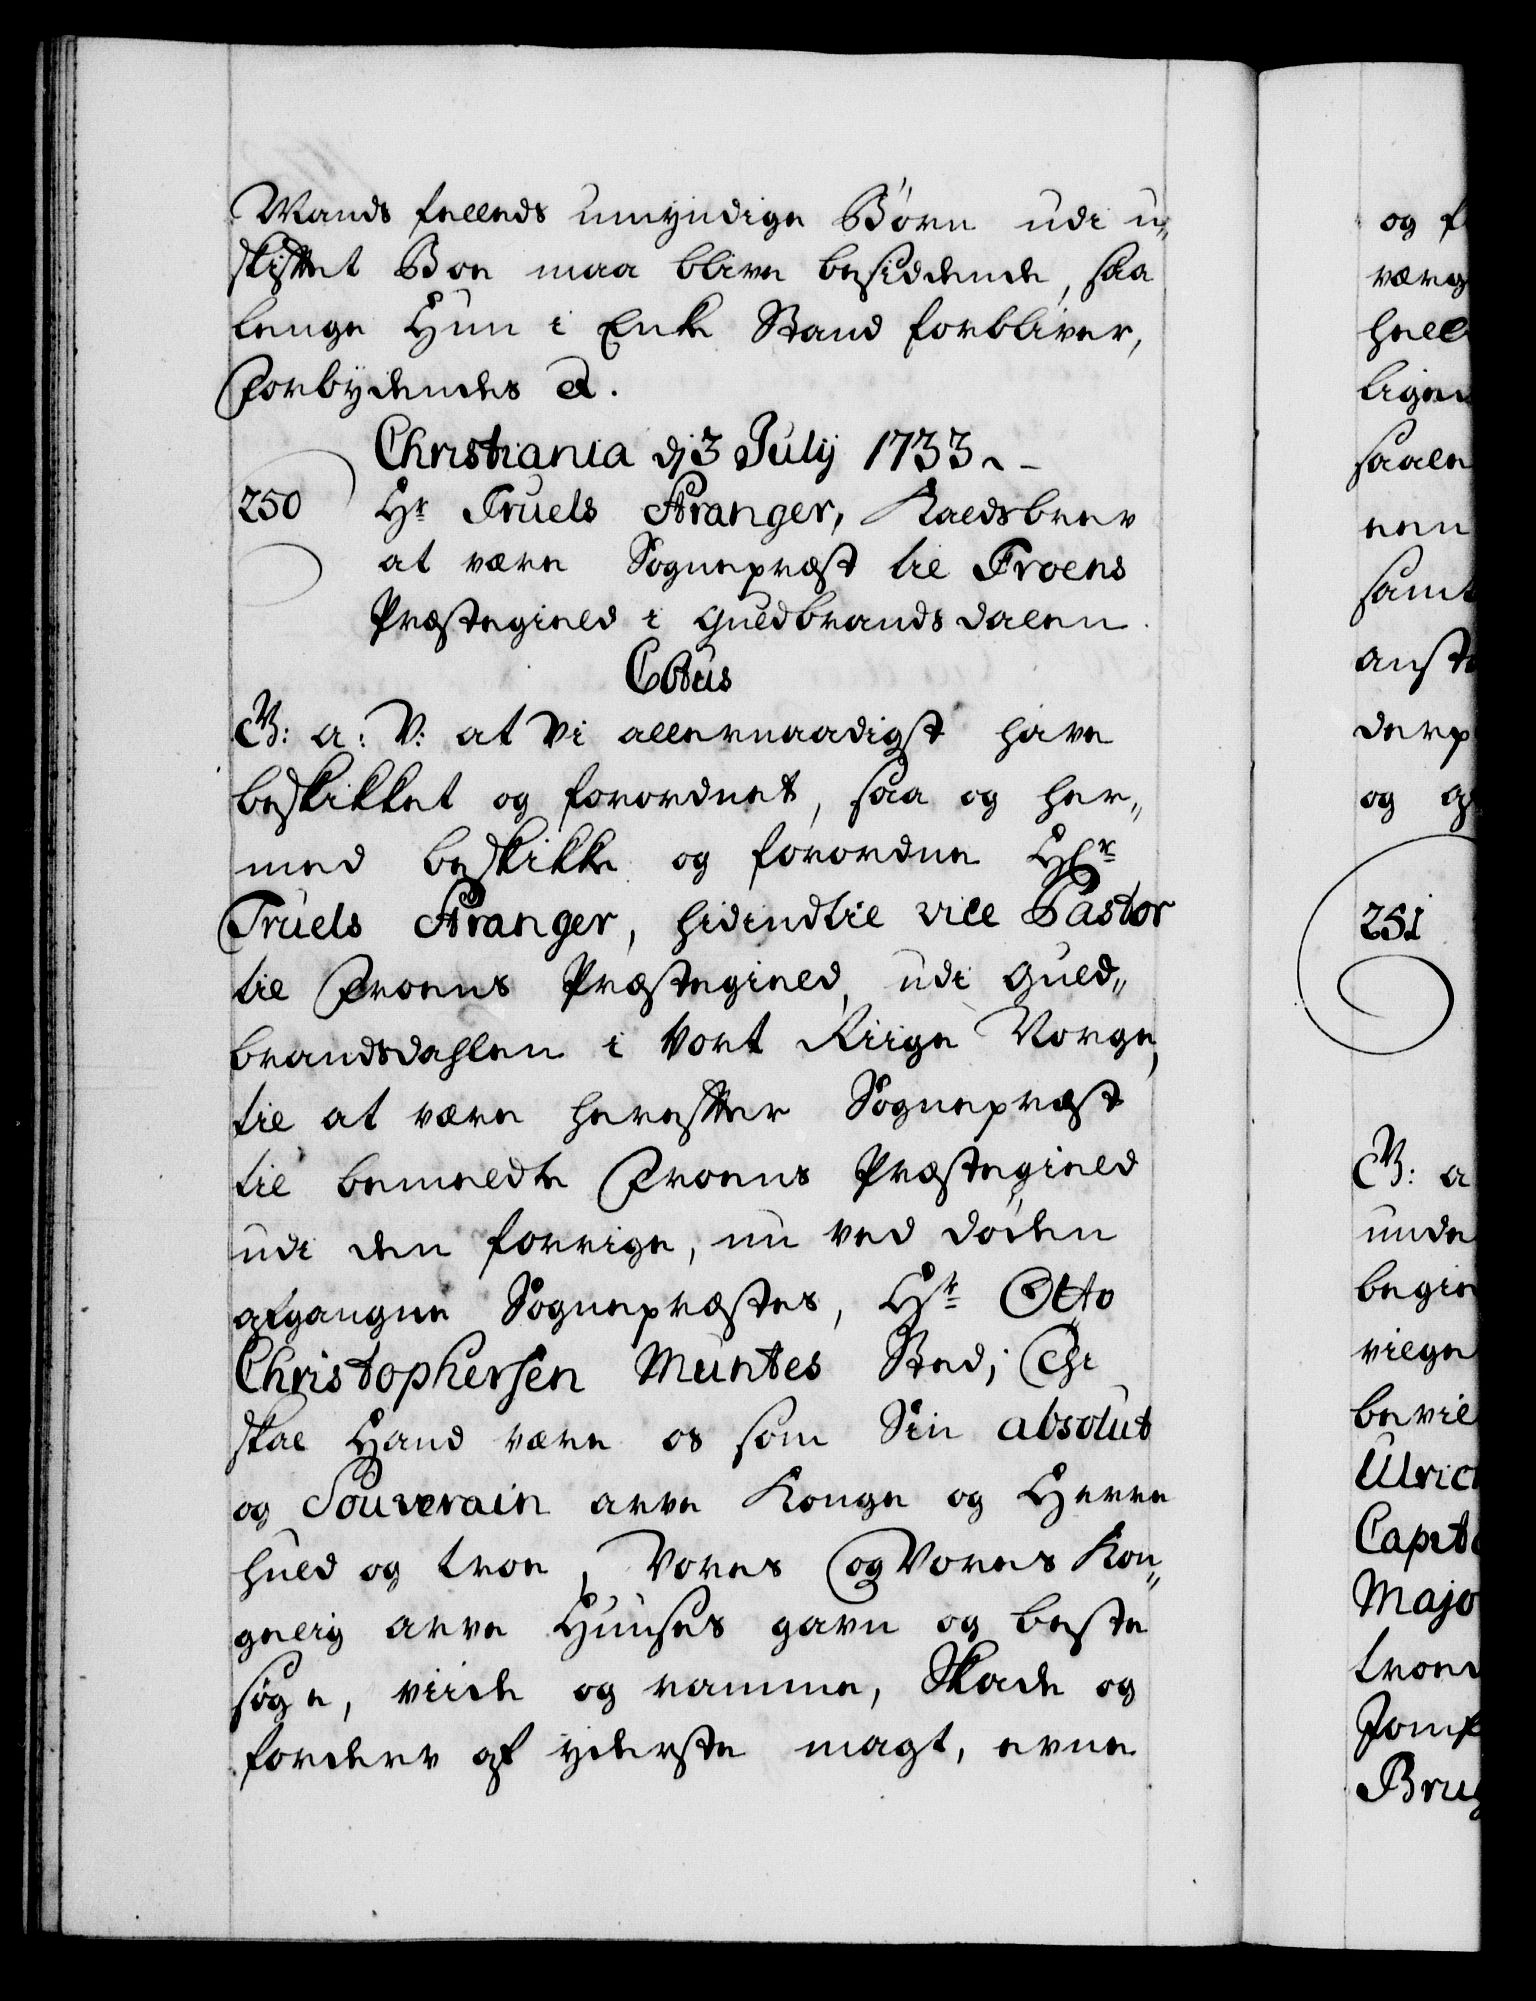 Mands fælleds umyndige Børn udi u„
skiftet Boe maa blive besiddende, saa
lenge Hun i Enke Stand forbliver,
Forbydendes &.
Christiania d 3 Julij 1733.
250
Hr Truels Stranger, Kaldsbrev
at være Sognepræst til Froens
Præstegield i Guldbrands dalen.
C6tus
G: a: V: at Vi allernaadigst have
beskikket og forordnet, saa og her„
med beskikke og forordne Hr
Truels Stranger, hidindtil vice Pastor
til Froens Præstegield, udi Guld„
brandsdahlen i Vort Riige Norge,
til at være herefter Sognepræst
til bemeldte Froens Præstegield
udi den forrige, nu ved døden
afgangne Sognepræstes, Hr Otto
Christophersen Muntes Sted; Thi
skal Hand være os som Sin absolut
og Souverain arve Konge og Herre
huld og troe, Vores og Vores Kon„
gelig arve Huuses gavn og beste
søge, viide og ramme, Skade og
forderv af yderste magt, evne
og f
værg
hell
liged
saale
nen
samt
anst
derp
og a
251
G: a
unde
begie
vilge
bevil
Ulric
Capit
Majo
troe
Jomf
Brug